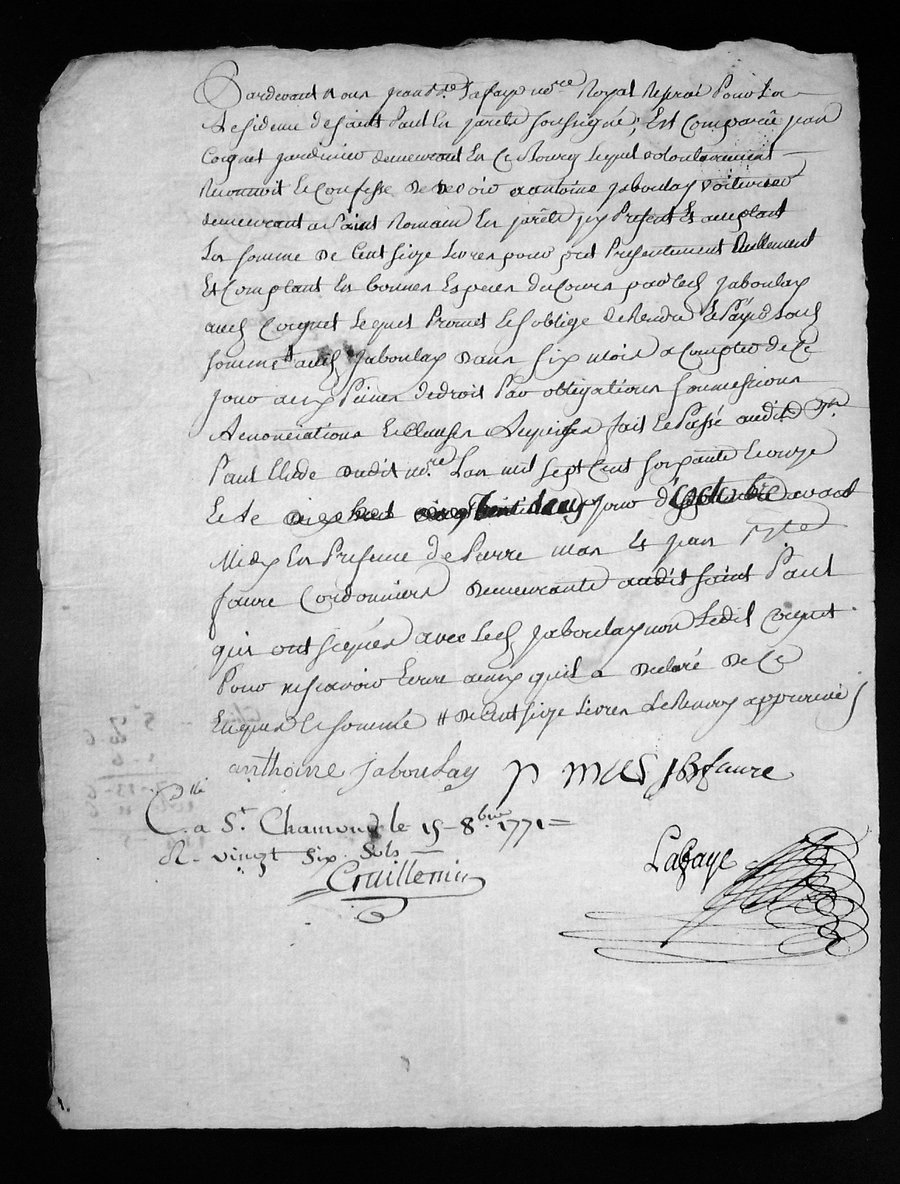 Pardevant nous jean Bte Lafaye nore Royal Reservé Pour La
Residence de saint Paul En jarêts soussigné, Est Comparûe jean
Coignet jardinier demeurant En Ce Bourg Lequel volontairement
Reconnoit Et Confesse De devoir a antoine jaboulay voiturier
demeurant a Saint Romain En jarêts icy Present Et acceptant
La somme De Cent seize Livres pour pret Presentement Reellement
Et Comptant En bonnes Especes du Cours par led jaboulay
aud Coignet Lequel Promet Et soblige de Rendre Et Payer Lad
somme aud jaboulay Dans six mois a Compter de Ce
jour aux Peines de droit Par obligations soumissions
Renonciations Et Clauses Requises fait Et Passé audit St
Paul Etude dudit nore Lan mil sept Cent soixante Et onze
Et Le jour d'octobre avant
Midy En Presence de Pierre mas Et jean Bte
faure Cordonniers Demeurants audit saint Paul
qui ont signés avec Led jaboulay non Ledit Coignet
Pour ne scavoir Ecrire ainsy quil a declaré De Ce
Enquis Et sommé # De Cent seize Livres Le Renvoy approuvé
anthoine jaboulay p mas jBfaure
C. a St. Chamond le 15 8bre 1771
R. vingt six sols
Lafaye